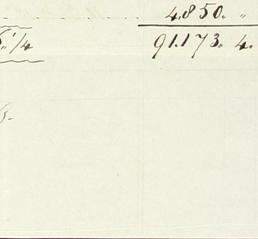 4.850. "
1/4 91.173. 4.